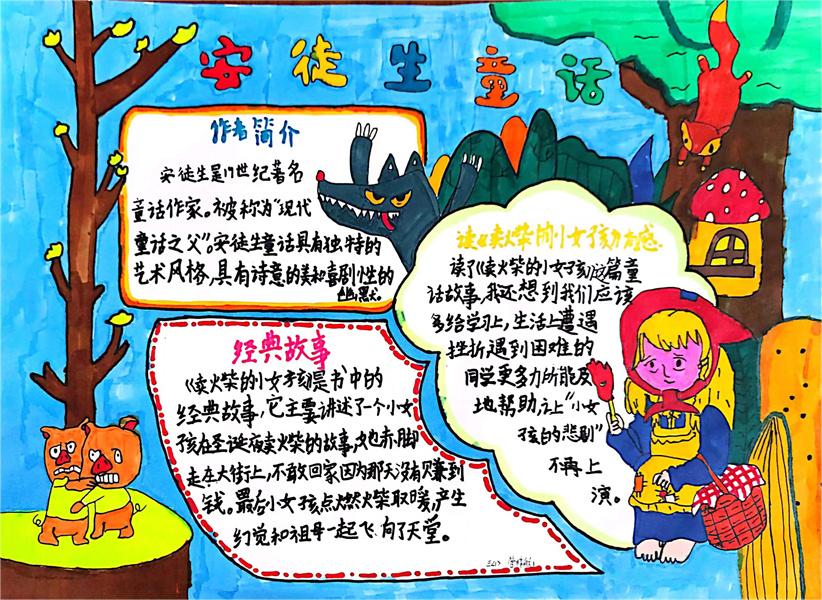 安徒生童话
作者简介
安徒生是19世纪著名
童话作家。被称为“现代
童话之父”。安徒生童话具有独特的
艺术风格,具有诗意的美和喜剧性的
幽默。
经典故事
《卖火柴的小女孩》是书中的
经典故事,它主要讲述了一个小女
孩在圣诞夜卖火柴的故事,她赤脚
走在大街上,不敢回家因为那天没有赚到
钱。最后小女孩点燃火柴取暖,产生
幻觉和祖母一起飞向了天堂。
读《卖火柴的小女孩》有感
读了《卖火柴的小女孩》这篇童
话故事,我还想到我们应该
多给学习上,生活上遭遇
挫折遇到困难的
同学更多力所能及
地帮助,让“小女
孩的悲剧”
不再上
演。